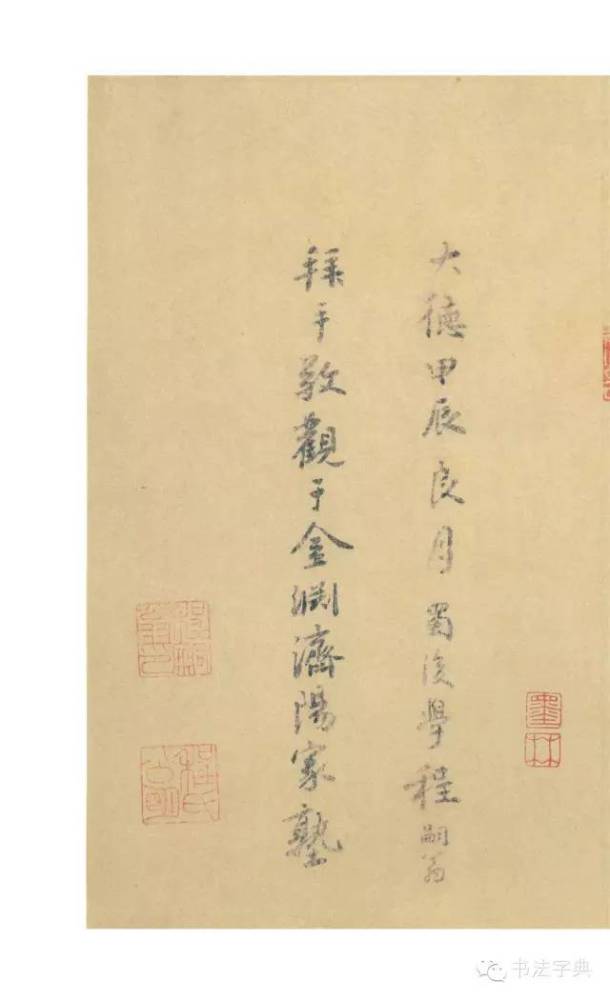 大德甲辰良月蜀後學程嗣翁
拜手敬觀于金淵濟陽家塾
墨林
程氏
书法字典